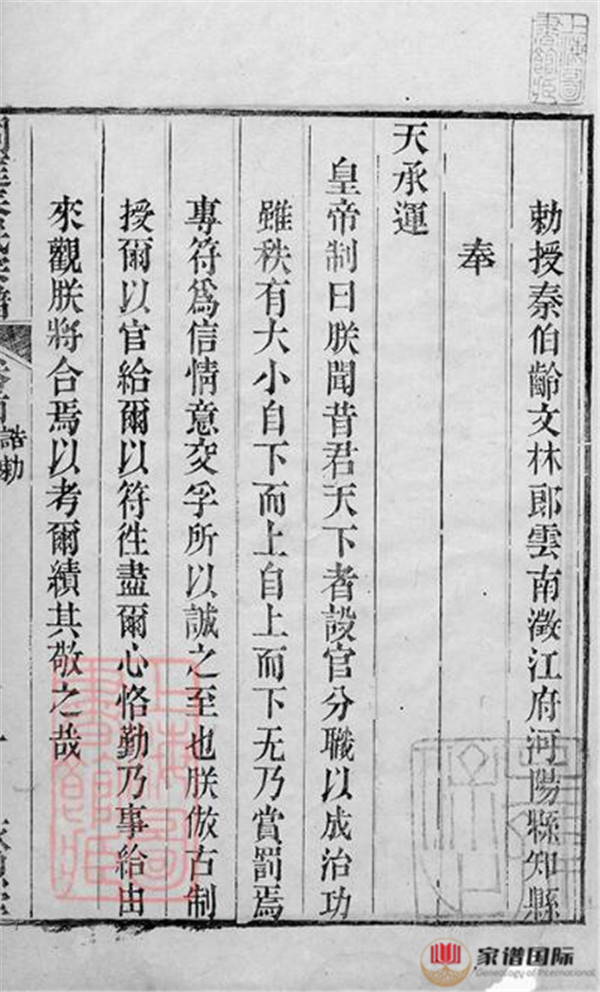 勅授秦伯齡文林郎雲南澂江府河陽縣知縣
奉
天承運
皇帝制曰朕聞昔君天下者設官分職以成治功
雖秩有大小自下而上自上而下无乃賞罰焉
專符為信情意交孚所以誠之至也朕倣古制
授爾以官給爾以符徃盡爾心恪勤乃事給由
來觀朕將合焉以考爾績其敬之哉
誥勅
上海圖書館藏
上海圖書館藏
家谱国际
Genealogy of International